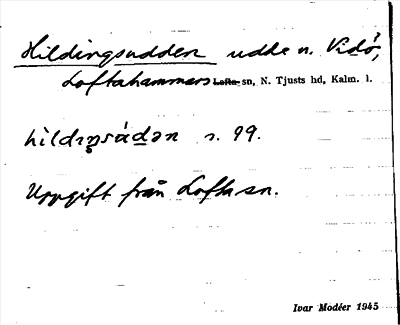 Hildingsudden udde n. Vidö,
Loftahammars Lofta sn, N. Tjusts hd, Kalm. l.
s. 99.
Uppgift från Lofta sn.
Ivar Modéer 1945